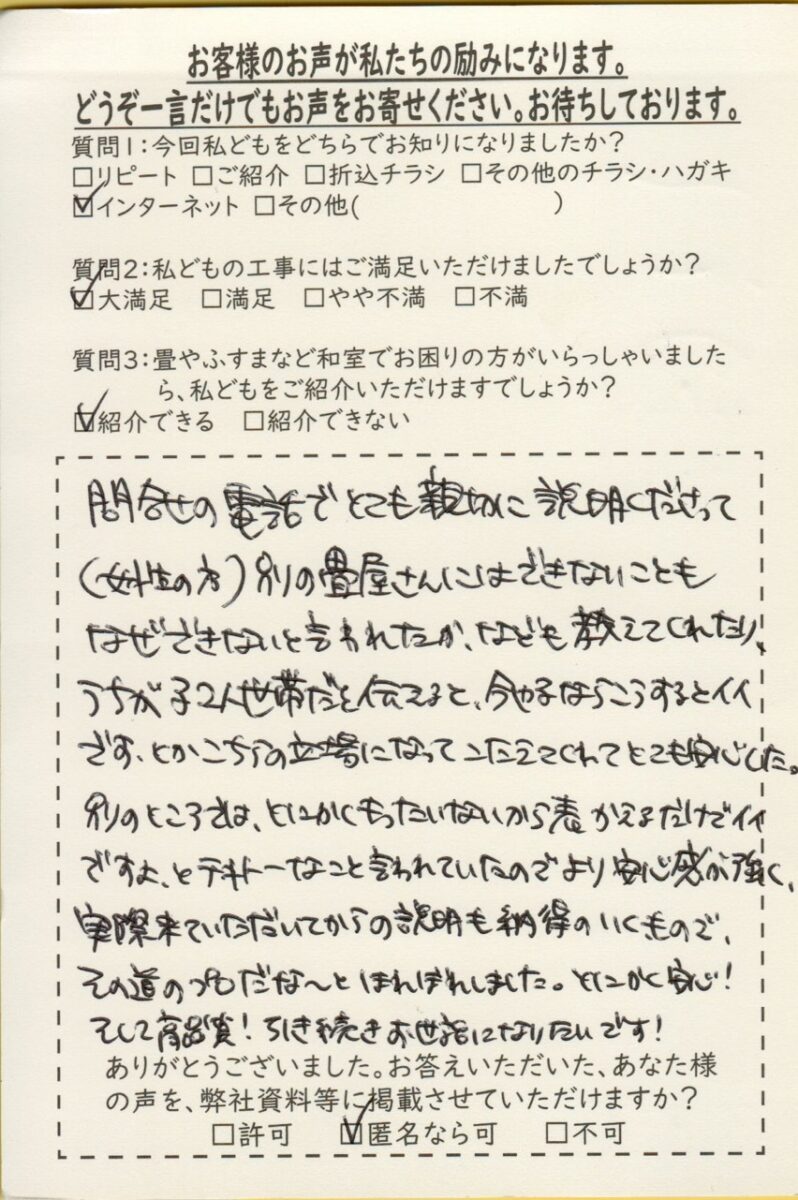 お客様のお声が私たちの励みになります。
どうぞ一言だけでもお声をお寄せください。お待ちしております。
質問1：今回私どもをどちらでお知りになりましたか？
□リピート □ご紹介 □折込チラシ □その他のチラシ・ハガキ
☑インターネット □その他(　　　　　　　　)
質問2：私どもの工事にはご満足いただけましたでしょうか？
☑大満足 □満足 □やや不満 □不満
質問3：畳やふすまなど和室でお困りの方がいらっしゃいました
ら、私どもをご紹介いただけますでしょうか？
☑紹介できる □紹介できない
問合せの電話でとても親切に説明くださって
(女性の方)別の畳屋さんにはできないことも
なぜできないと言われたか、なども教えてくれたり、
うちが子2人世帯だと伝えると、今や子ならこうするとイイ
です、とかこちらの立場になってこたえてくれてとても安心した。
別のところでは、とにかくもったいないから表かえるだけでイイ
ですよ、とテキトーなこと言われていたのでより安心感が強く、
実際来ていただいてからの説明も納得のいくもので、
その道のプロだな〜とほれぼれしました。とにかく安心！
そして高品質！引き続きお世話になりたいです！
ありがとうございました。お答えいただいた、あなた様
の声を、弊社資料等に掲載させていただけますか？
□許可 ☑匿名なら可 □不可